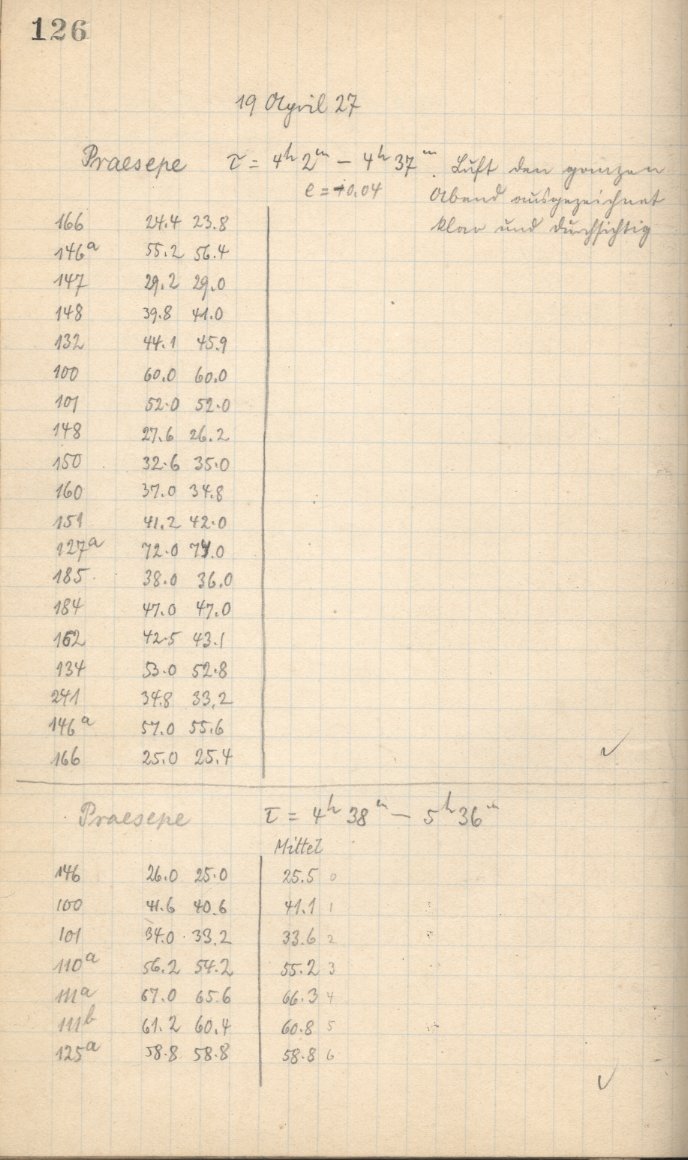 126
19 April 27
Praesepe τ = 4h 2m – 4h 37m. Luft den ganzen
e = +0.04 Abend ausgezeichnet
klar und durchsichtig
166 24.4 23.8
146a 55.2 56.4
147 29.2 29.0
148 39.8 41.0
132 44.1 45.9
100 60.0 60.0
101 52.0 52.0
148 27.6 26.2
150 32.6 35.0
160 37.0 34.8
151 41.2 42.0
127a 72.0 74.0
185 38.0 36.0
184 47.0 47.0
162 42.5 43.1
134 53.0 52.8
241 34.8 33.2
146a 57.0 55.6
166 25.0 25.4 ✓
Praesepe τ = 4h 38m – 5h 36m
Mittel
146 26.0 25.0 25.5 0
100 41.6 40.6 41.1 1
101 34.0 33.2 33.6 2
110a 56.2 54.2 55.2 3
111a 67.0 65.6 66.3 4
111b 61.2 60.4 60.8 5
125a 58.8 58.8 58.8 6
✓